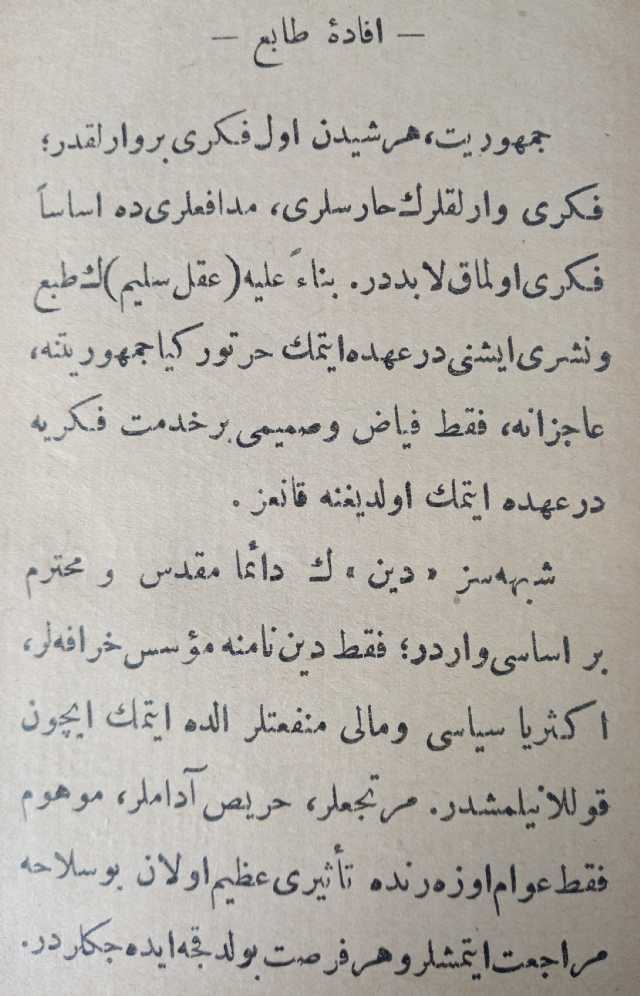 — افادهٔ طابع —
جمهوریت، هرشیدن اول فکری بروارلقدر؛
فکری وارلقلرك حارسلری، مدافعلری‌ده اساساً
فکری اولماق لابددر. بناءً علیه (عقل سلیم)ك طبع
و نشری ایشنی درعهده ایتمك حر تورکیا جمهوریتنه،
عاجزانه، فقط فیاض و صمیمی بر خدمت فکریه
درعهده ایتمك اولدیغنه قانعز .
شبهه‌سز «دین» ك دائما مقدس و محترم
بر اساسی واردر؛ فقط دین نامنه مؤسس خرافه‌لر،
اکثریا سیاسی و مالی منفعتلر الده ایتمك ایچون
قوللانیلمشدر. مرتجعلر، حریص آداملر، موهوم
فقط عوام اوزه‌رنده تأثیری عظیم اولان بو سلاحه
مراجعت ایتمشلر و هر فرصت بولدقجه ایده‌جکلردر.